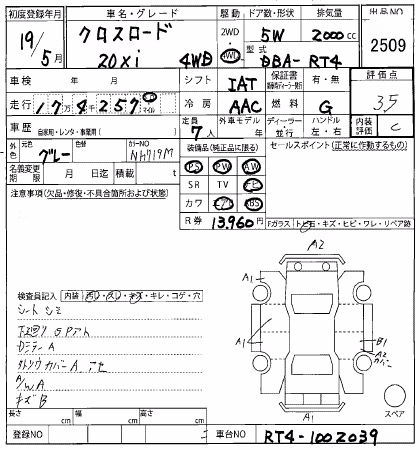 初度登録年月 車名・グレード 駆動 ドア数・形状 排気量 出品NO
19年 5月 クロスロード 20Xi 4WD 2WD 4WD 5W 2000cc 2509
型式 DBA-RT4
車検 年 月 シフト IAT 保証書 新車時ディーラー発行 有 評価点
走行 17万4千257 km マイル 冷房 AAC 燃料 G 3.5
車歴 自家用・レンタ・事業用( ) 定員 7人 外車モデル 年 ディーラー 並行 ハンドル 左・右 内装評価 C
外色 元色 グレー 色替 カラーNO NH719M 装備品(純正品に限る) セールスポイント(正常に作動するもの)
名義変更期限 月 日迄 積載 t PS PW AW
注意事項(欠品・修復・不具合箇所および状態) SR TV ナビ
カワ エアB ABS
R券 13,960円 Fガラス トビ石・キズ・ヒビ・ワレ・リペア跡
A2
検査員記入 内装 汚レ・スレ・キズ・キレ・コゲ・穴 A1 A1
シートシミ
A1 A1 B1
A2 カバー
A/W A
キズB
スペア
A1
長さ cm 幅 cm 高さ cm
登録NO 車台NO RT4-1002039